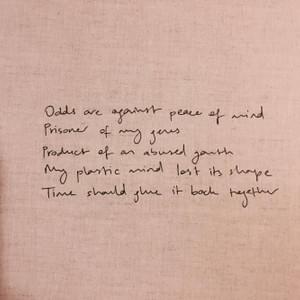 Odds are against peace of mind
Prisoner of my genes
Product of an abused youth
My plastic mind lost its shape
Time should glue it back together